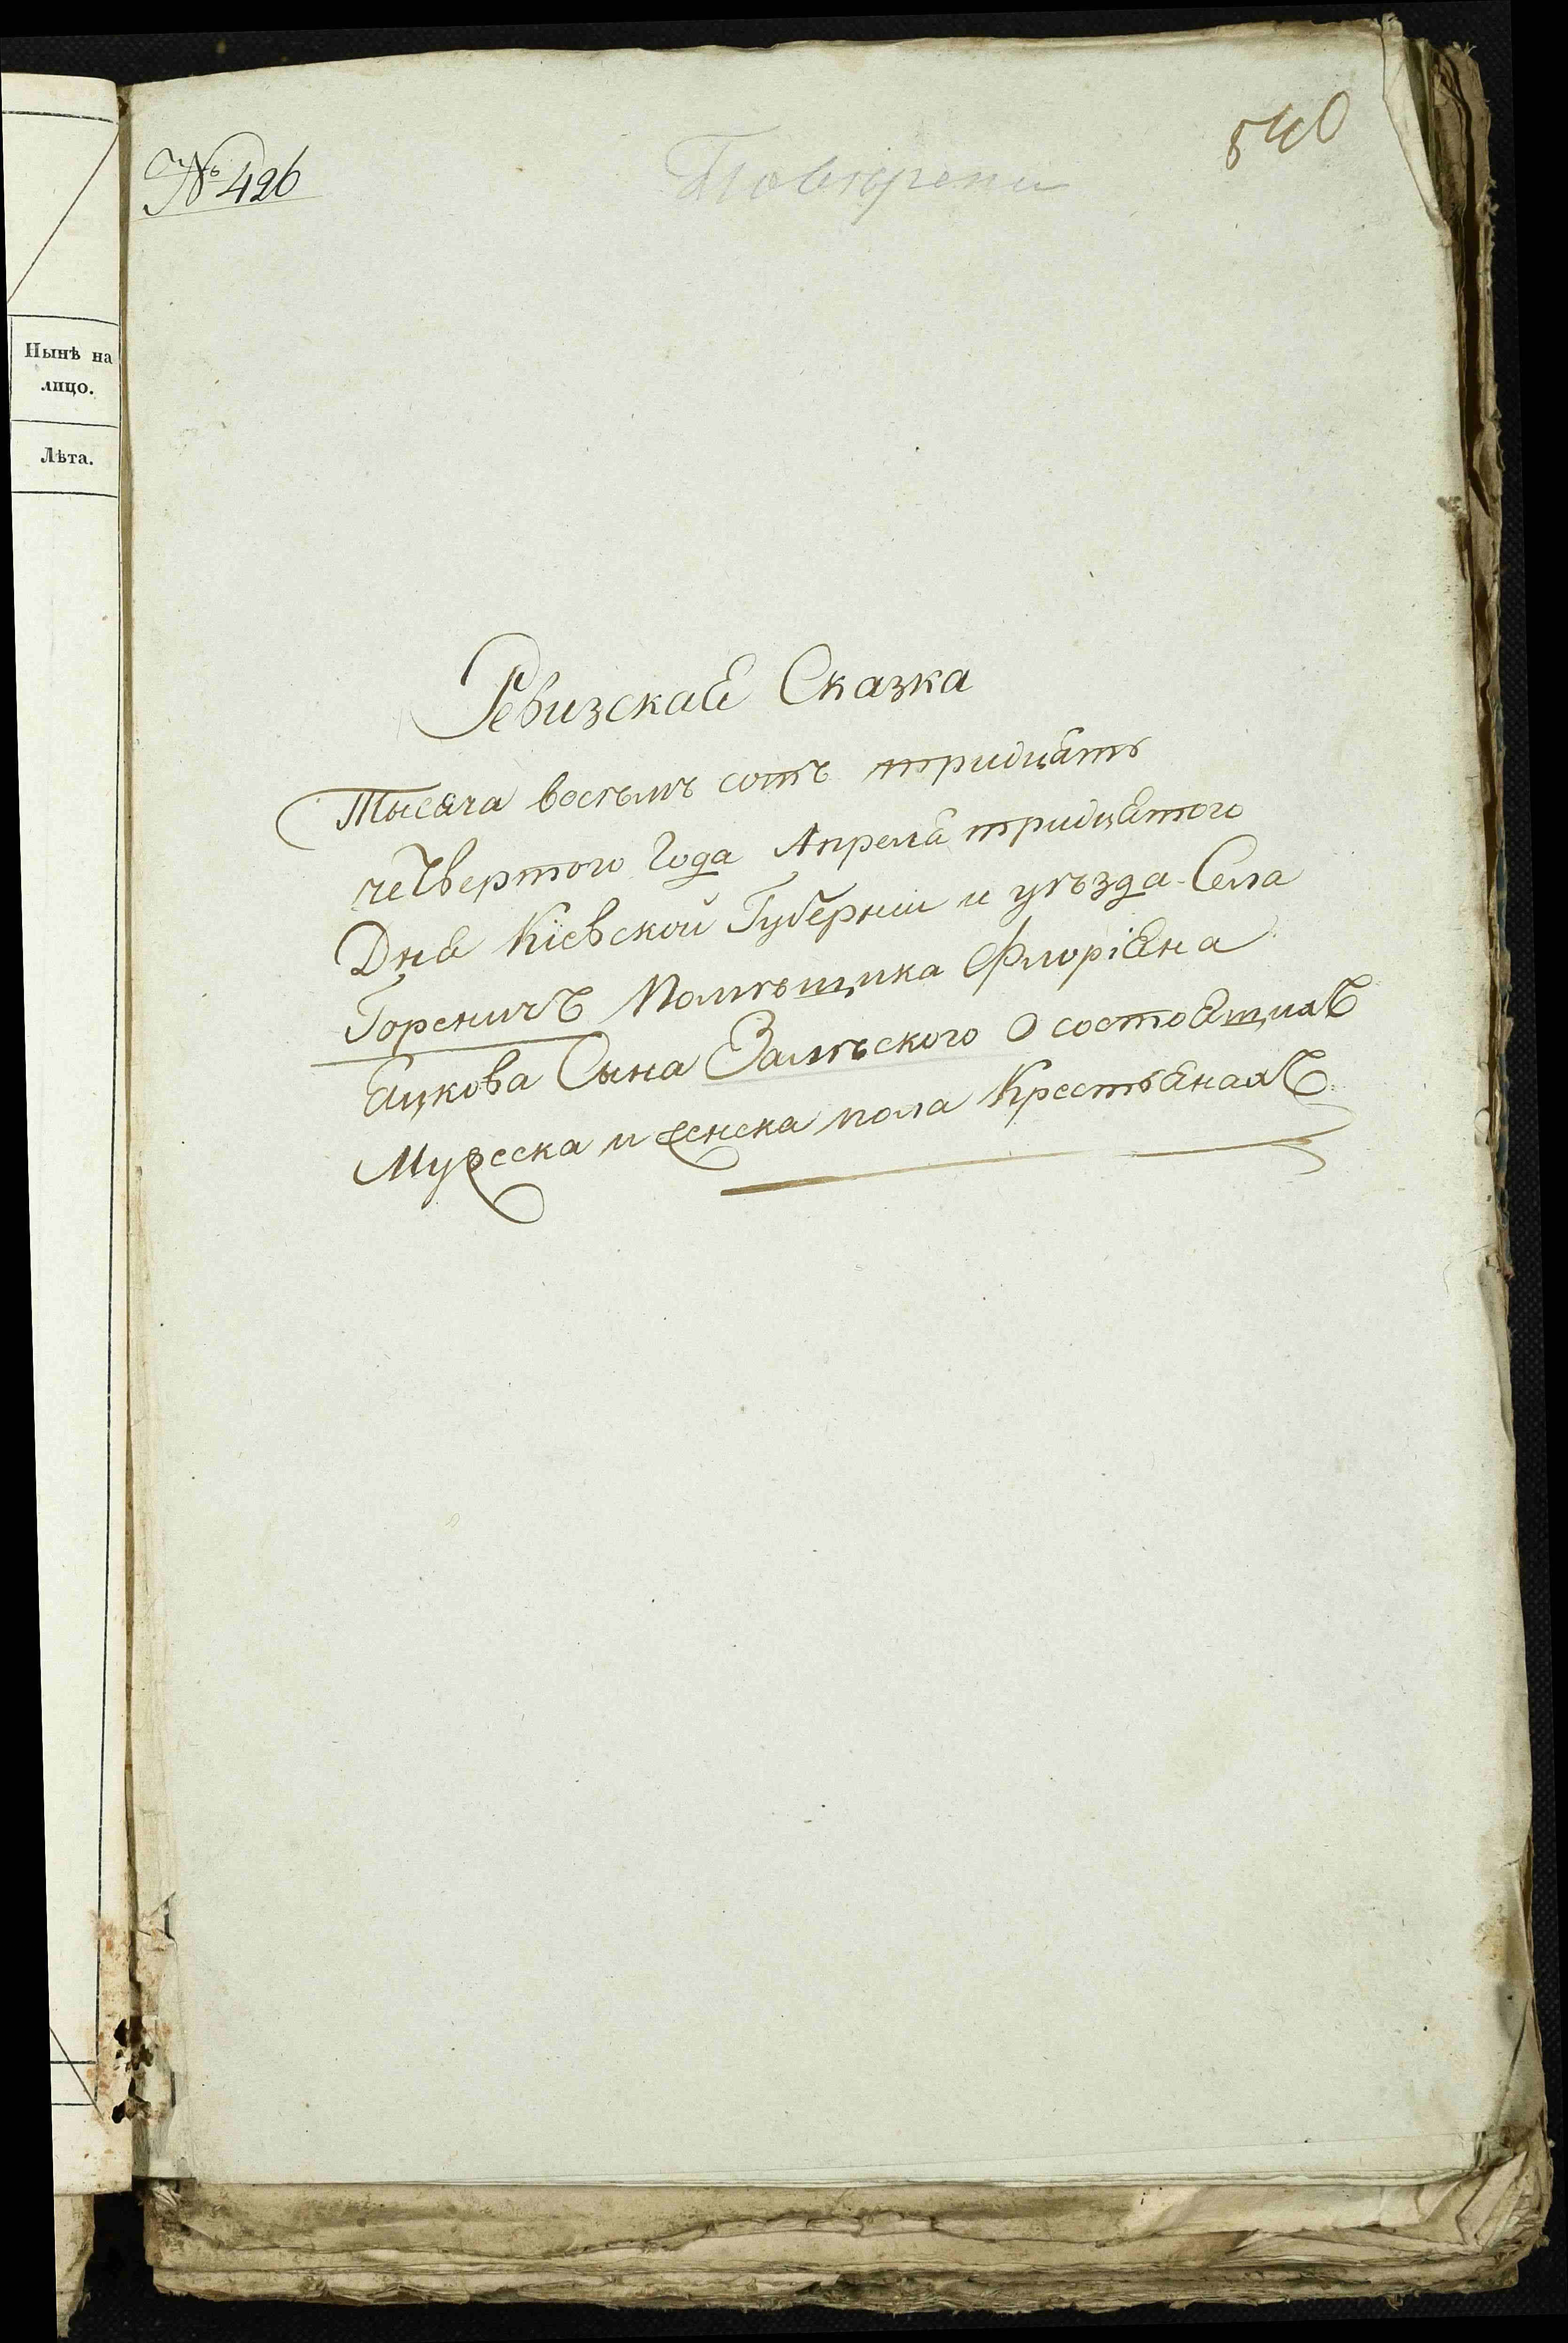 № 426
Повѣрена
540
Нынѣ на
лицо.
Лѣта.
Ревизская Сказка
Тысяча восѣмъ сотъ тридцать
четвертого Года Апреля тридцятого
Дня Кіевской Губерніи и уѣзда Села
Гореничъ Помѣщика Флоріяна
Яцкова Сына Залѣского О состоящихъ
Мужеска и женска пола Крестьянахъ